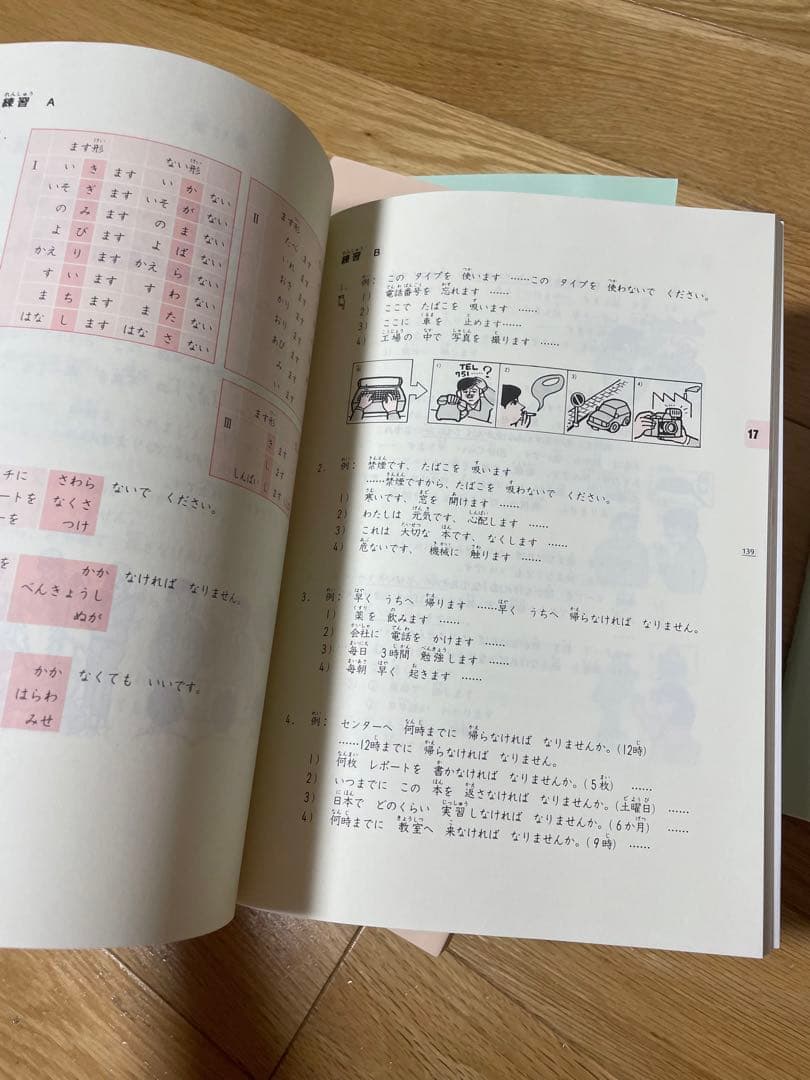 練習 A
ます形 ない形
I い き ます い か ない
いそ ぎ ます いそ が ない
の み ます の ま ない
よ び ます よ ば ない
かえ り ます かえ ら ない
す い ます す わ ない
ま ち ます ま た ない
はな し ます はな さ ない
II ます形
たべ ます
いれ ます
おき ます
かり ます
おり ます
あび ます
み ます
い ます
III ます形
き ます
し ます
しんぱい し ます
チに さわら ないで ください。
ートを なくさ
ーを つけ
を かか なければ なりません。
べんきょうし
ぬが
かか なくても いいです。
はらわ
みせ
練習 B
1. 例: この タイプを 使います ……この タイプを 使わないで ください。
1) 電話番号を 忘れます ……
2) ここで たばこを 吸います ……
3) ここに 車を 止めます……
4) 工場の 中で 写真を 撮ります ……
1) TEL 751 ……? 2) 3) 4)
17
2. 例: 禁煙です、たばこを 吸います
……禁煙ですから、たばこを 吸わないで ください。
1) 寒いです、窓を 開けます ……
2) わたしは 元気です、心配します ……
3) これは 大切な 本です、なくします ……
4) 危ないです、機械に 触ります ……
139
3. 例: 早く うちへ 帰ります ……早く うちへ 帰らなければ なりません。
1) 薬を 飲みます ……
2) 会社に 電話を かけます ……
3) 毎日 3時間 勉強します ……
4) 毎朝 早く 起きます ……
4. 例: センターへ 何時までに 帰らなければ なりませんか。(12時)
……12時までに 帰らなければ なりません。
1) 何枚 レポートを 書かなければ なりませんか。(5枚) ……
2) いつまでに この 本を 返さなければ なりませんか。(土曜日) ……
3) 日本で どのくらい 実習しなければ なりませんか。(6か月) ……
4) 何時までに 教室へ 来なければ なりませんか。(9時) ……